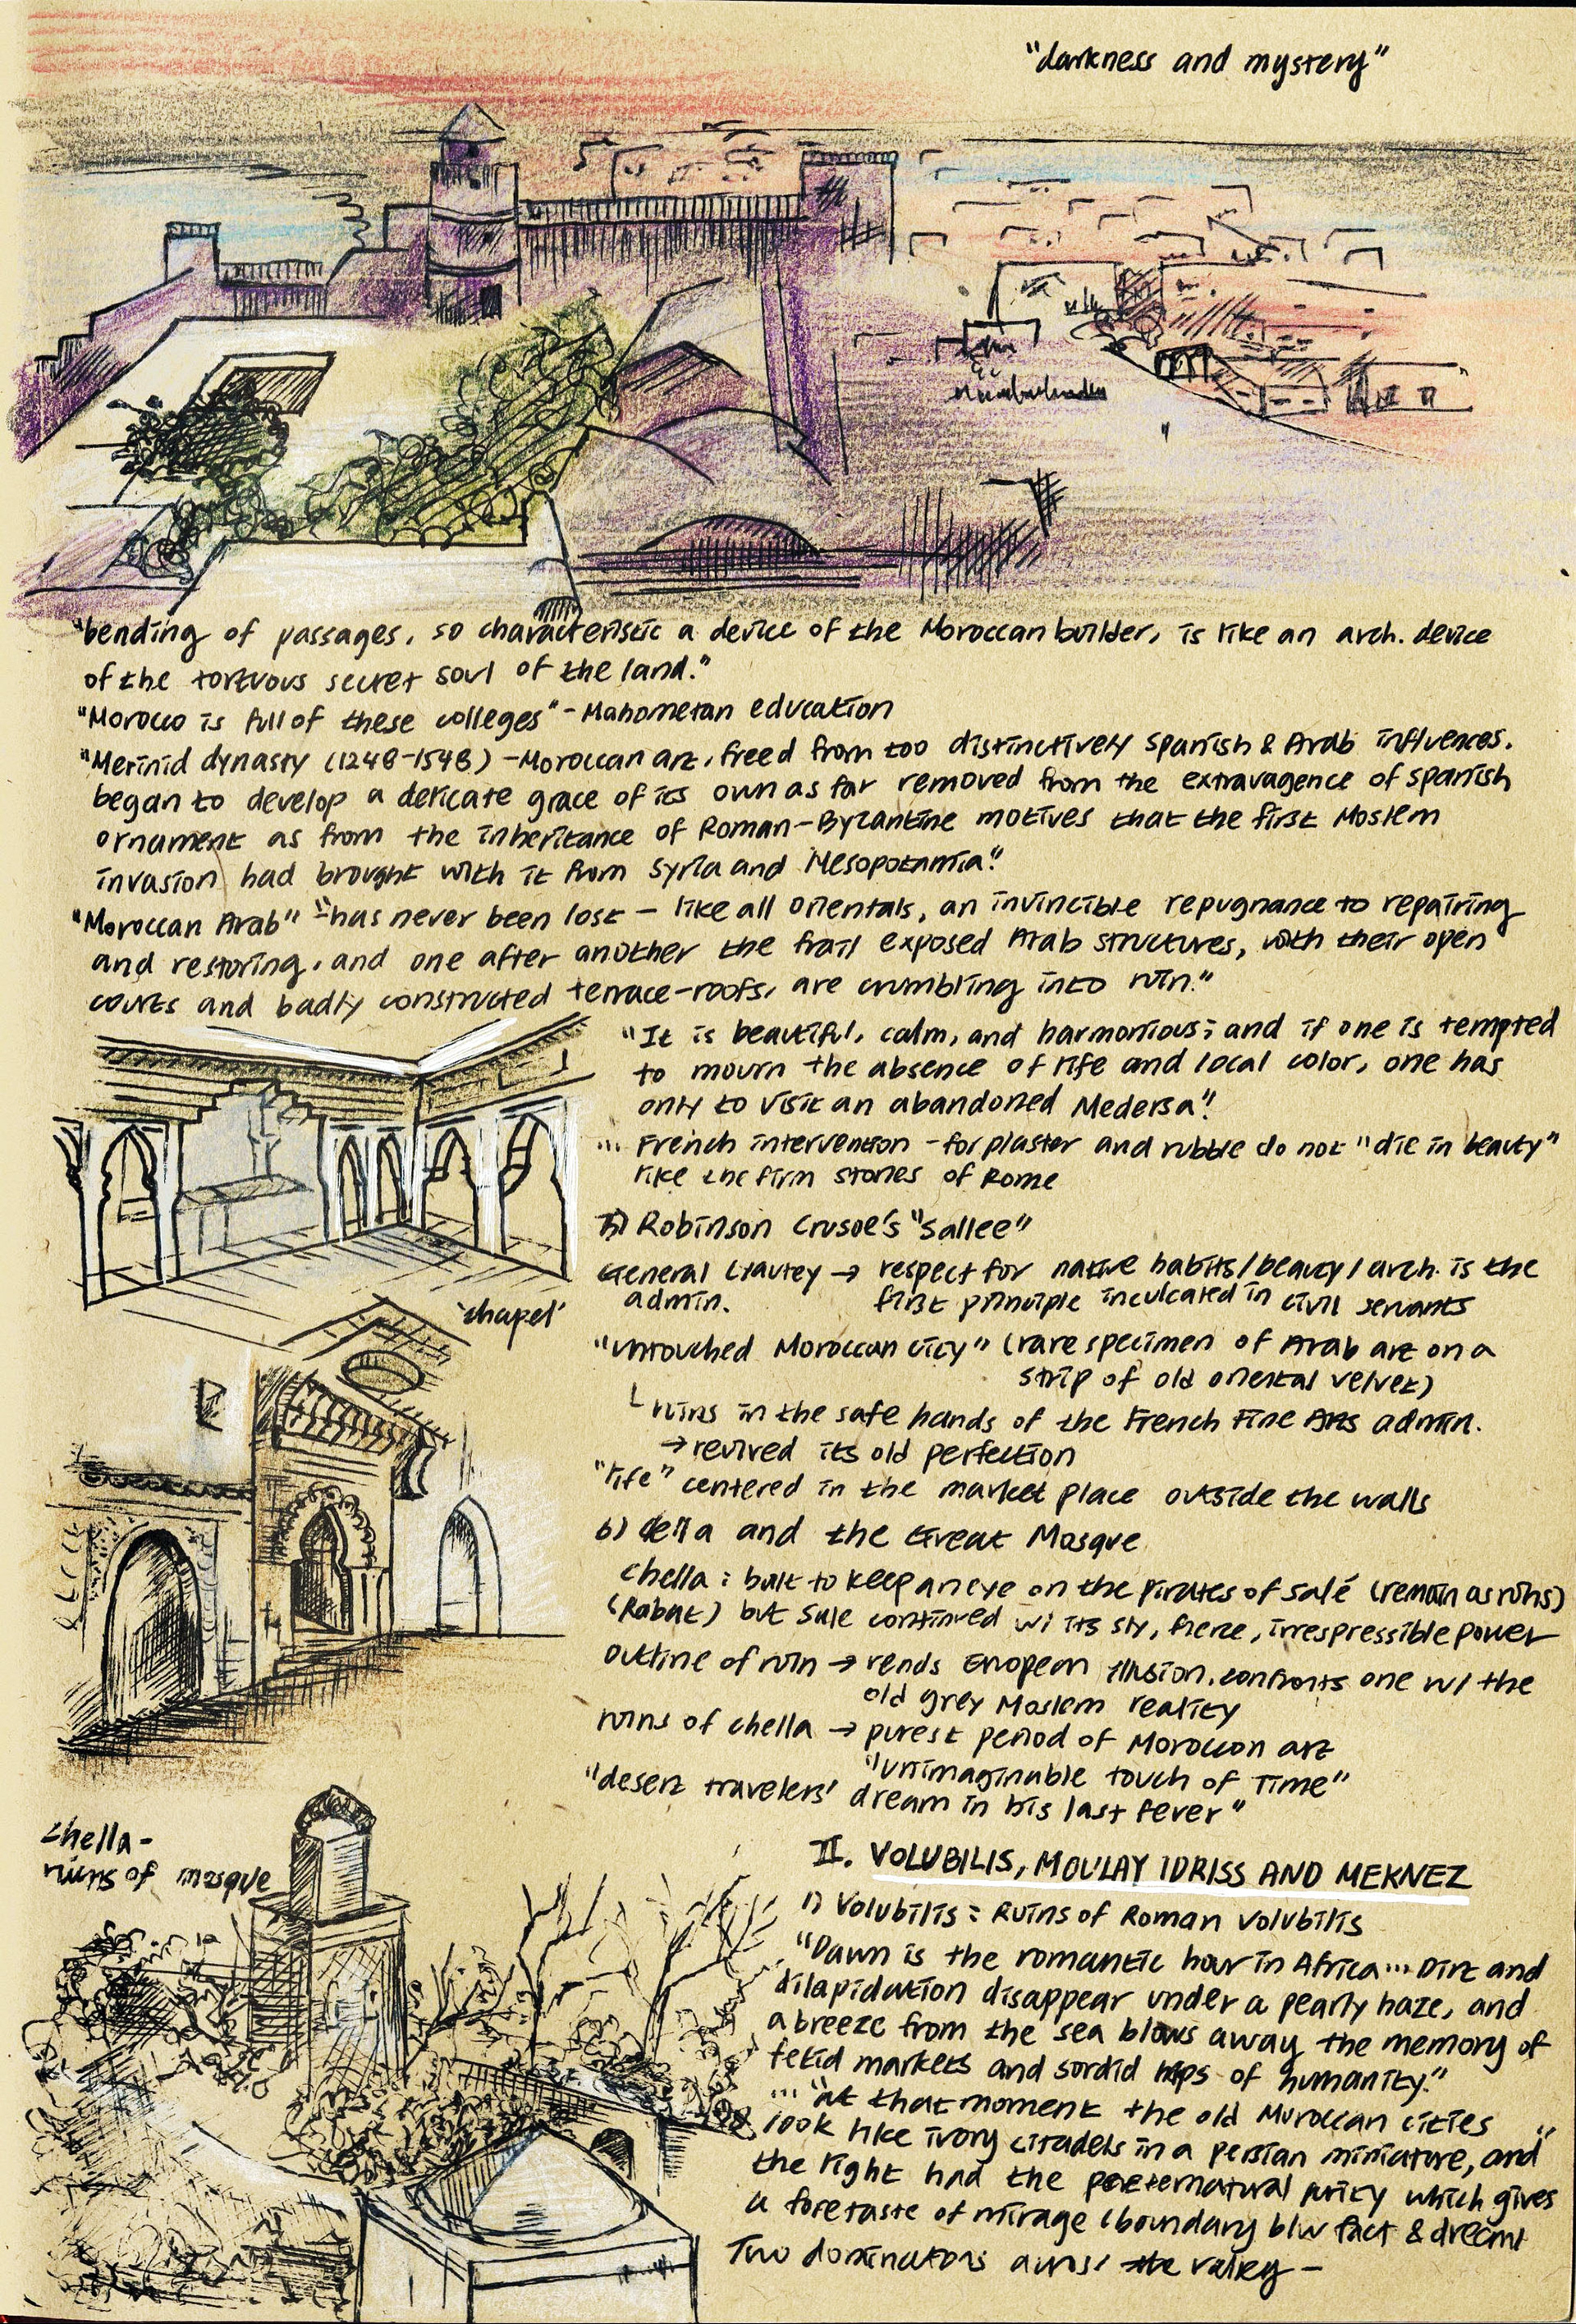 "darkness and mystery"
"bending of passages, so characteristic a device of the Moroccan builder, is like an arch. device
of the tortuous secret soul of the land."
"Morocco is full of these colleges" - Mahometan education
"Merinid dynasty (1248-1548) - Moroccan art, freed from too distinctively Spanish & Arab influences,
began to develop a delicate grace of its own as far removed from the extravagence of Spanish
ornament as from the inheritance of Roman-Byzantine motives that the first Moslem
invasion had brought with it from Syria and Mesopotamia"
"Moroccan Arab" "has never been lost - like all orientals, an invincible repugnance to repairing
and restoring, and one after another the frail exposed Arab structures, with their open
courts and badly constructed terrace-roofs, are crumbling into ruin."
"It is beautiful, calm, and harmonious; and if one is tempted
to mourn the absence of life and local color, one has
only to visit an abandoned Medersa".
... French intervention - for plaster and rubble do not "die in beauty"
like the firm stones of Rome
Robinson Crusoe's "Sallee"
General Lyautey → respect for native habits/beauty/arch. is the
admin. first principle inculcated in civil servants
'chapel'
"untouched Moroccan city" (rare specimen of Arab art on a
strip of old oriental velvet)
ruins in the safe hands of the French Fine Arts admin.
→ revived its old perfection
"life" centered in the market place outside the walls
b) and the Great Mosque
Chella: built to keep an eye on the pirates of Salé (remain as ruins)
(Rabat) but Sale continued w/ its sly, fierce, irrespressible power
outline of ruin → rends Europern illusion, confronts one w/ the
old grey Moslem reality
ruins of chella → purest period of Moroccon art
"unimaginable touch of Time"
"desert travelers' dream in his last fever"
Chella -
ruins of mosque
II. VOLUBILIS, MOULAY IDRISS AND MEKNEZ
1) Volubilis: Ruins of Roman Volubilis
"Dawn is the romantic hour in Africa... Dirt and
dilapidation disappear under a pearly haze, and
a breeze from the sea blows away the memory of
fetid markets and sordid of humanity."
... "at that moment the old Moroccan cities
look like ivory citadels in a persian miniature, and"
the light had the preternatural purity which gives
a foretaste of mirage (boundary b/w fact & dream)
Two dominators across the valley -